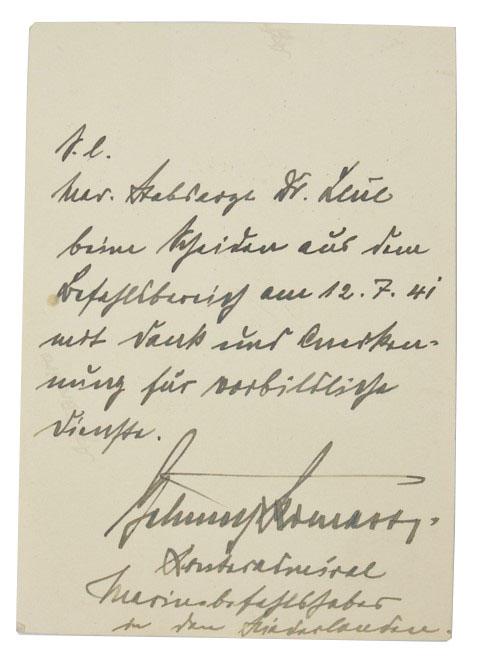 S. l.
Mar. Stabsarzt Dr. Zeul
beim Scheiden aus dem
Befehlsbereich am 12.7.41
mit Dank und Anerken-
nung für vorbildliche
Dienste.
Konteradmiral
Marinebefehlshaber
in den Niederlanden.